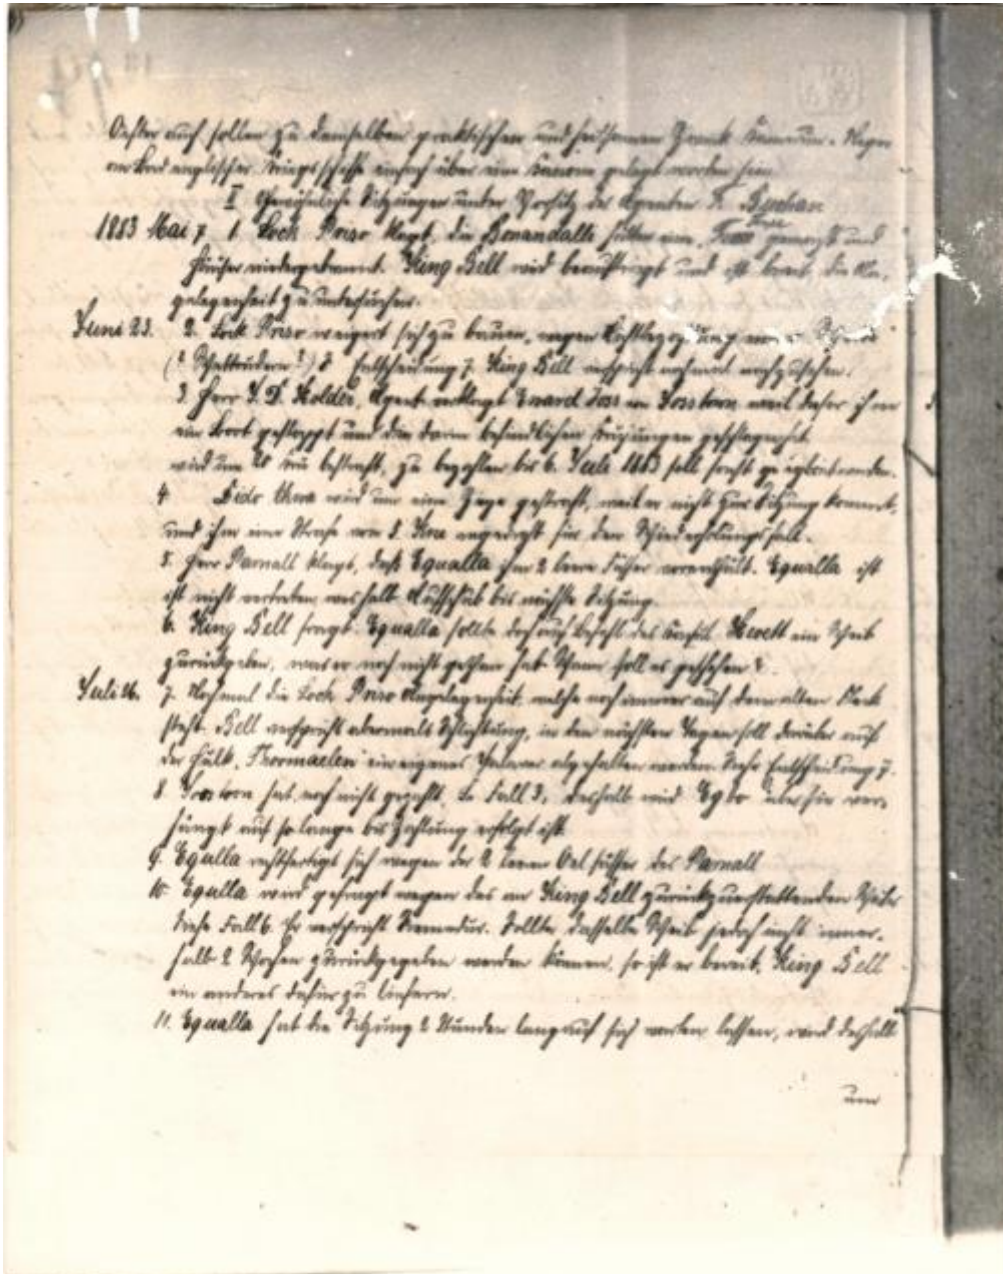 Oefter auch sollen zu demselben praktischen und heilsamen Zweck Kamerun-Neger
an Bord englischer Kriegsschiffe einfach über eine Kanone gelegt worden sein
II Gewöhnliche Sitzungen unter Vorsitz des Agenten F. Buchan
1883 Mai 7 1 Lock Priso klagt, die Bonandalle hätten eine Frau gemordet und
Häuser niedergebrannt. King Bell wird beauftragt und ist bereit die An-
gelegenheit zu untersuchen.
Juni 23. 2. Lock Priso weigert sich zu bauen, wegen
Entscheidung ? King Bell verspricht nochmal nachzusehen.
3 Herr S. D. Holder, Agent verklagt Eward Joss von Josstown weil dieser ihm
ein Boot gestoppt und die darin befindlichen geschlagen hat
wird um 20 Kru bestraft, zu bezahlen bis 6. Juli 1883 soll sonst werden.
4 Dido Akwa wird um eine Ziege gestraft, weil er nicht zur Sitzung kommt,
und ihm eine Strafe von 5 Kru angedroht für den Wiederholungsfall.
5. Herr Parnall klagt, daß Equalla ihm 2 leere Fässer vorenthält. Equalla ist
ist nicht vertreten, weshalb Aufschub bis nächste Sitzung.
6. King Bell fragt. Equalla sollte doch auf Befehl des Konsul Hewett ein Weib
zurückgeben, was er noch nicht gethan hat. Wann soll es geschehen?
Juli 26. 7. Nochmal die Lock Priso Angelegenheit, welche noch immer auf dem alten Fleck
steht. Bell verspricht abermals Schlichtung, in den nächsten Tagen soll darüber auf
der Hulk Thormaelen ein eigenes Palaver abgehalten werden. Entscheidung ?.
8 Josstown hat noch nicht gezahlt, Fall 3, deshalb wird Egbo über ihn ver-
hängt auf so lange bis Zahlung erfolgt ist
9. Equlla rechtfertigt sich wegen der 2 leeren Oelfässer des Parnall
10. Equlla wird gefragt wegen des an King Bell zurückzuerstattenden Weibes
siehe Fall 6. Er verspricht Remedur. Sollte dasselbe Weib jedoch nicht inner-
halb 2 Wochen zurückgegeben werden können, so ist er bereit, King Bell
ein anderes dafür zu liefern.
11. Equalla hat die Sitzung 2 Stunden lang auf sich warten lassen, wird deshalb
um